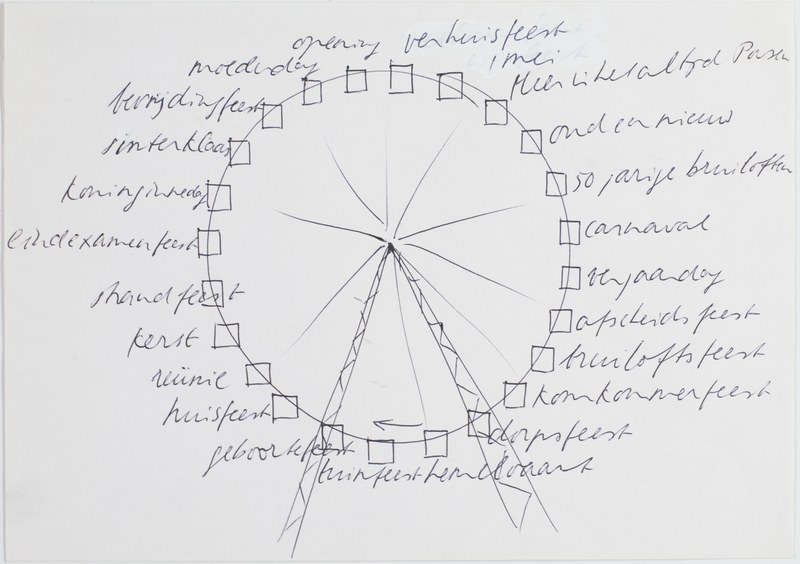 opening
verhuisfeest
1 mei
Pasen
oud en nieuw
50 jarige bruiloften
carnaval
verjaardag
afscheidsfeest
bruiloftsfeest
komkommerfeest
dorpsfeest
hemelvaart
tuinfeest
geboortefeest
huisfeest
reünie
kerst
strandfeest
eindexamenfeest
koninginnedag
sinterklaas
bevrijdingsfeest
moederdag